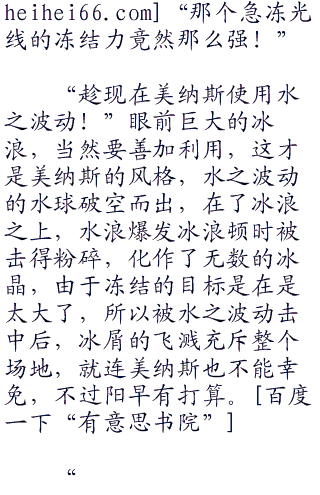 heihei66.com]“那个急冻光
线的冻结力竟然那么强！”
“趁现在美纳斯使用水
之波动！”眼前巨大的冰
浪，当然要善加利用，这才
是美纳斯的风格，水之波动
的水球破空而出，在了冰浪
之上，水浪爆发冰浪顿时被
击得粉碎，化作了无数的冰
晶，由于冻结的目标是在是
太大了，所以被水之波动击
中后，冰屑的飞溅充斥整个
场地，就连美纳斯也不能幸
免，不过阳早有打算。[百度
一下“有意思书院”]
“